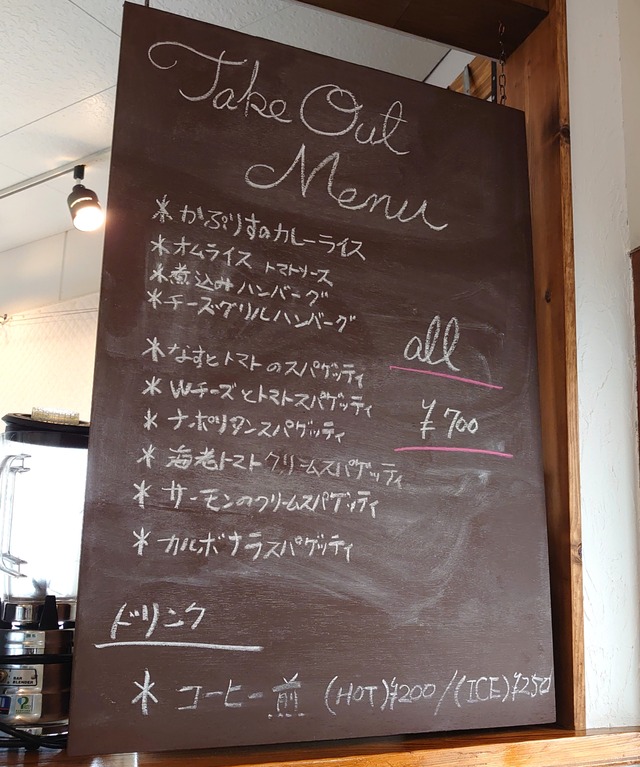 Take Out
Menu
* かぷりすのカレーライス
* オムライス トマトソース
* 煮込みハンバーグ
* チーズグリルハンバーグ
all
¥700
* なすとトマトのスパゲッティ
* Wチーズとトマトスパゲッティ
* ナポリタンスパゲッティ
* 海老トマトクリームスパゲッティ
* サーモンのクリームスパゲッティ
* カルボナラスパゲッティ
ドリンク
* コーヒー煎 (HOT)¥200/(ICE)¥250